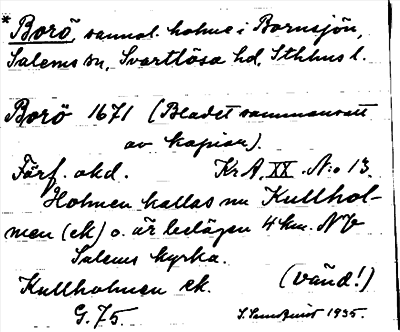 * Borö, sannol. holme i Bornsjön,
Salems sn, Svartlösa hd, Sthlms l.
Borö 1671 (Bladet sammansatt
av kopior).
Förf. okd. Kr A, XX. N:o 13.
Holmen kallas nu Kullhol-
men (ek) o. är belägen 4 km. NV
Salems kyrka.
Kullholmen ek. (vänd!)
G. 75. 1935.